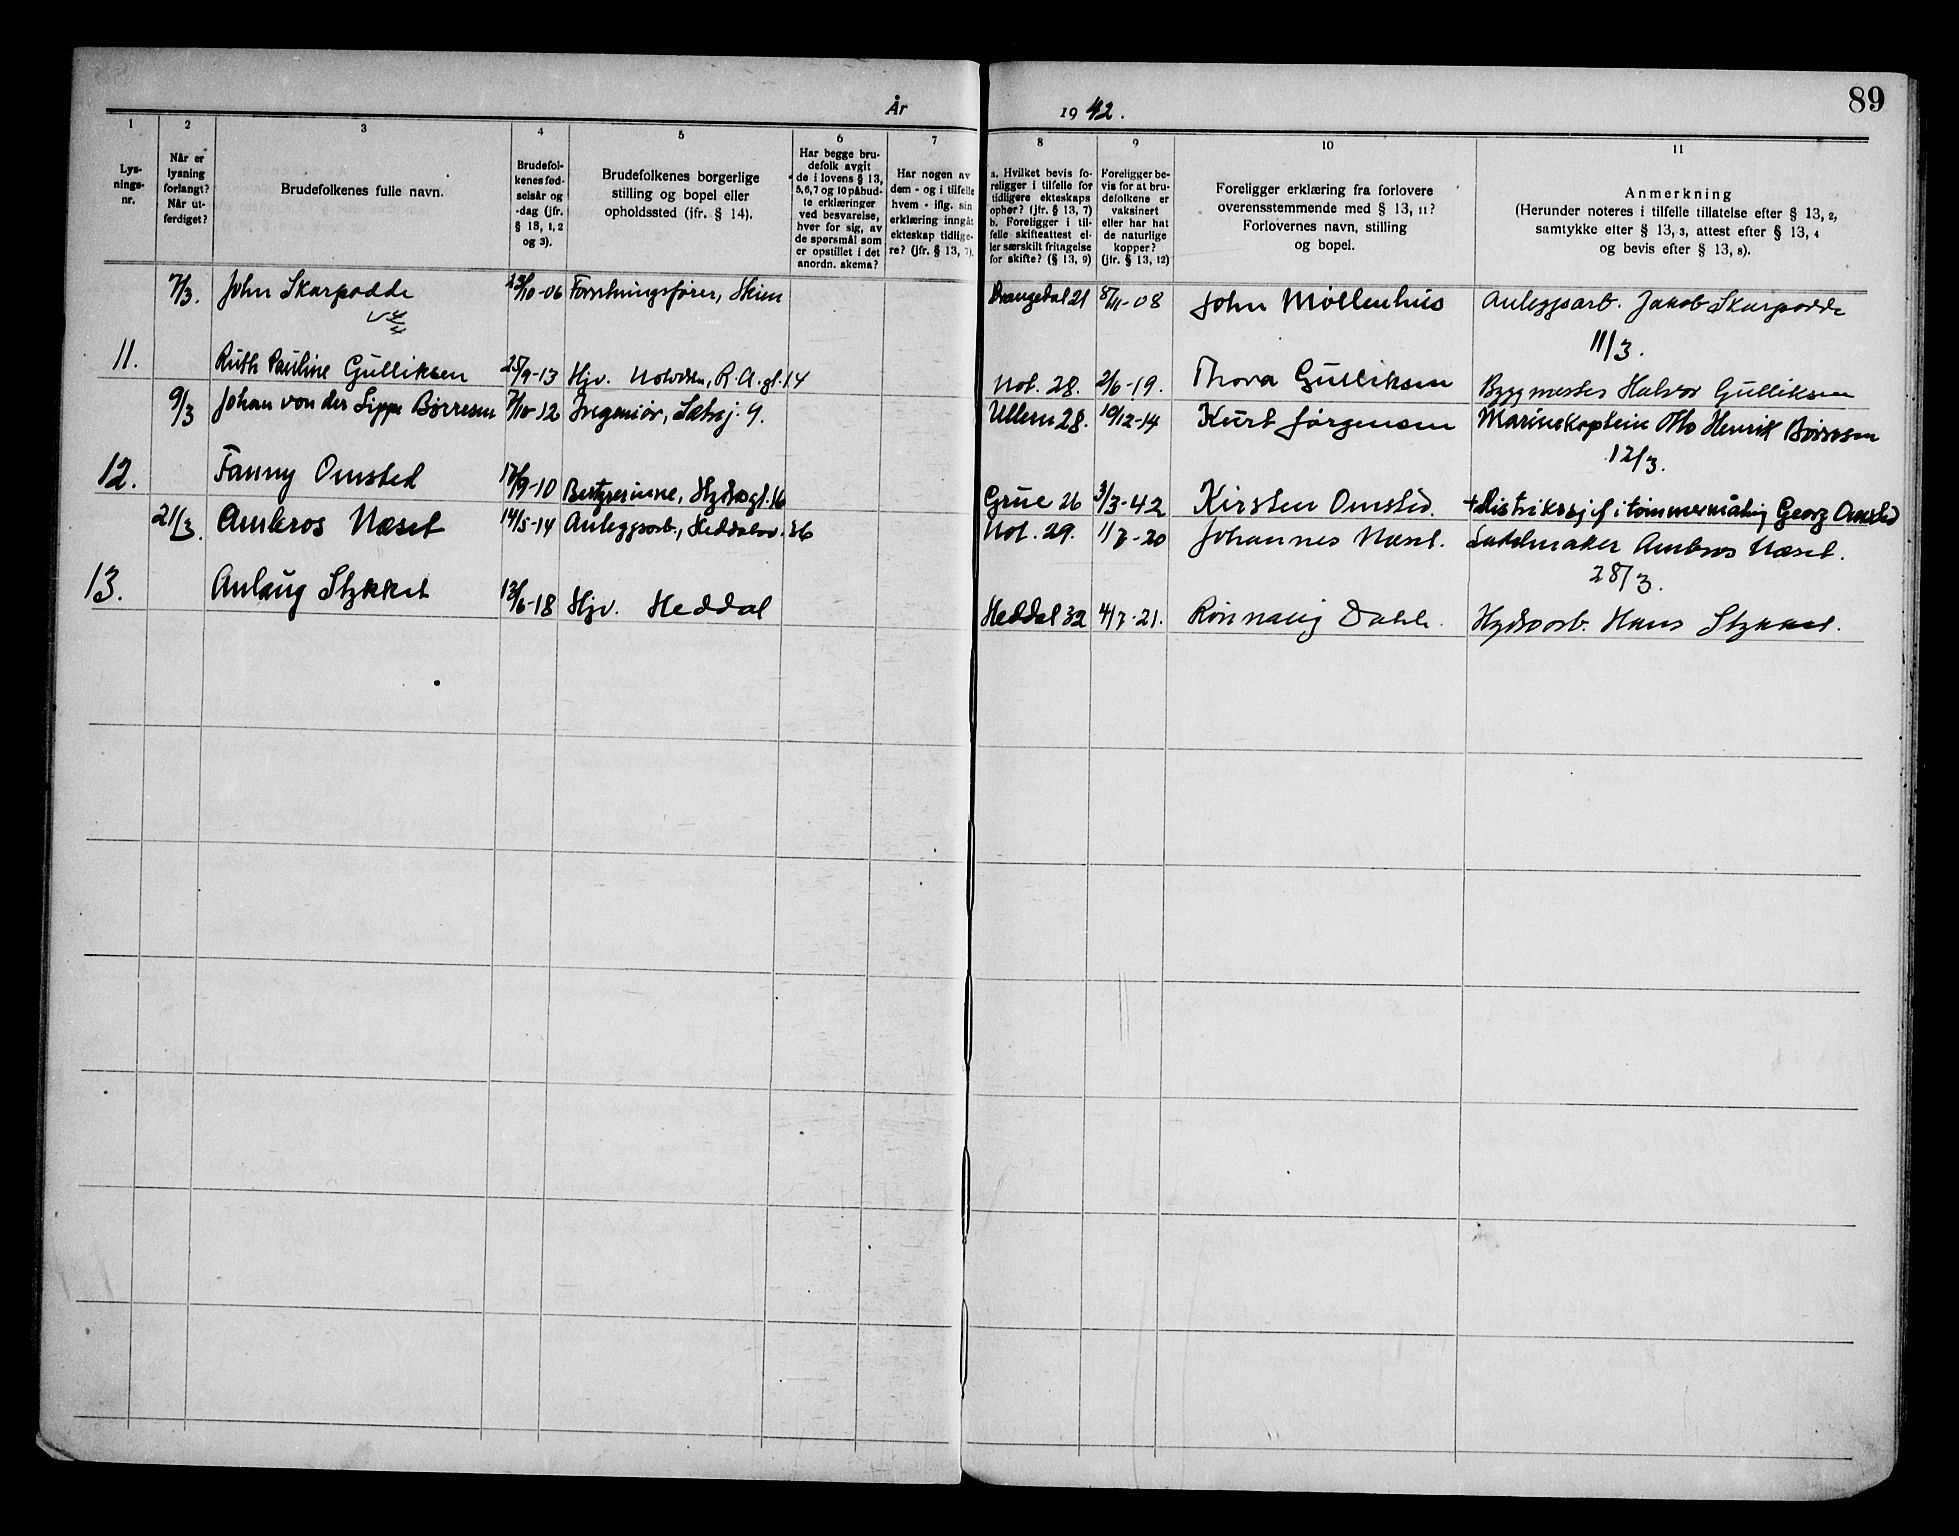 89
År 1942.
1
Lysningsnr.
2
Når er lysning forlangt? Når utferdiget?
3
Brudefolkenes fulle navn.
4
Brudefolkenes fødselsår og -dag (jfr. § 13, 1, 2 og 3).
5
Brudefolkenes borgerlige stilling og bopel eller opholdssted (jfr. § 14).
6
Har begge brudefolk avgit de i lovens § 13, 5, 6, 7 og 10 påbudte erklæringer ved besvarelse, hver for sig, av de spørsmål som er opstillet i det anordn. skema?
7
Har nogen av dem - og i tilfelle hvem - iflg. sin erklæring inngått ekteskap tidligere? (jfr. § 13, 7).
8
a. Hvilket bevis foreligger i tilfelle for tidligere ekteskaps ophør? (jfr. § 13, 7) b. Foreligger i tilfelle skifteattest eller særskilt fritagelse for skifte? (§ 13, 9)
9
Foreligger bevis for at brudefolkene er vaksinert eller har hat de naturlige kopper? (jfr. § 13, 12)
10
Foreligger erklæring fra forlovere overensstemmende med § 13, 11? Forlovernes navn, stilling og bopel.
11
Anmerkning
(Herunder noteres i tilfelle tillatelse efter § 13, 2, samtykke efter § 13, 3, attest efter § 13, 4 og bevis efter § 13, 8).
7/3. John Skarpodde 25/10-06 Forretningsfører, Skien Drangedal 21 8/11-08 John Møllenhus Anleggsarb. Jakob Skarpodde
11/3.
11. Ruth Pauline Gulliksen 25/9-13 Hjv. Notodden, R. A. gt. 14 Not. 28. 2/6-19. Thora Gulliksen Byggmester Halvor Gulliksen
9/3 Johan von der Lippe Børresen 7/10-12 Ingeniør, Sætrej. 9. Ullern 28. 10/12-14 Kurt Jørgensen Marinekaptein Otto Henrik Børresen
12/3.
12. Fanny Omsted 17/9-10 Bestyrerinne, Hydrogt. 16 Grue 26 3/3-42 Kirsten Omsted. + Distriktssjef i tømmermåling Georg Omsted
21/3. Ambros Næset 14/5-14 Anleggsarb., Heddalsv. 36 Not. 29. 11/7-20 Johannes Næset. Salmaker Ambros Næset.
28/3.
13. Anlaug Stykket 13/6-18 Hjv. Heddal Heddal 32 4/7-21. Rønnaug Dahle. Hydroarb. Hans Stykket.